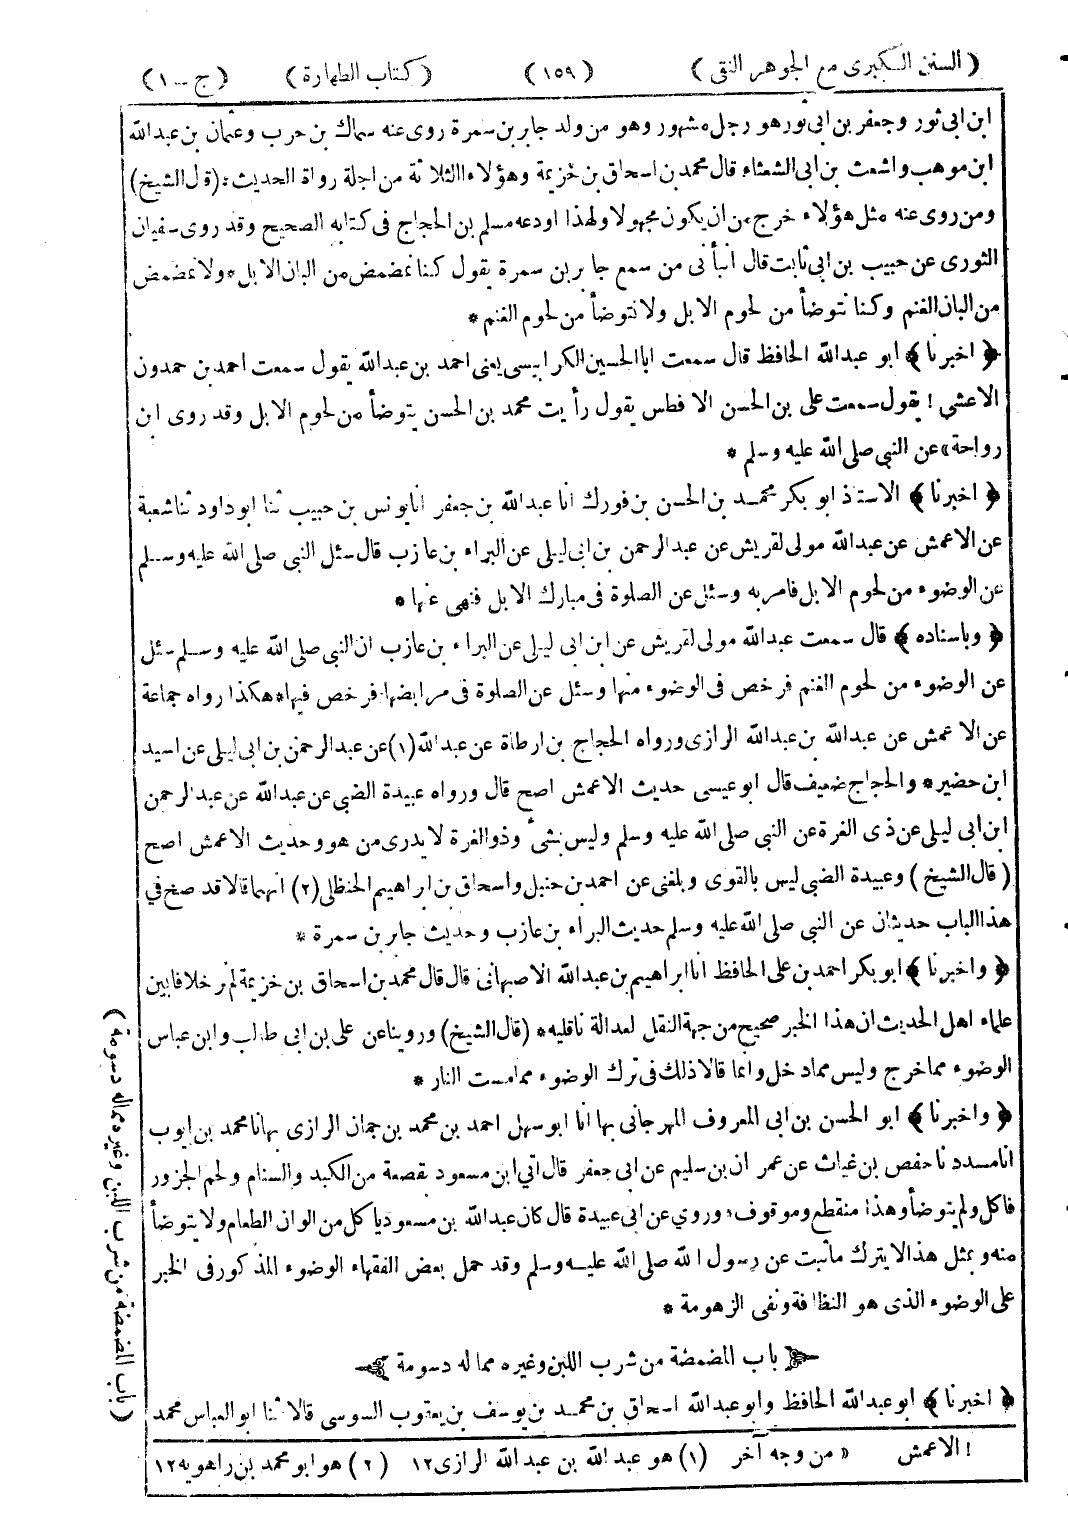 ( السنن الكبرى مع الجوهر النقى ) ( ١٥٩ ) ( كتاب الطهارة ) ( ج - ١ )
ابن ابى ثور وجعفر بن ابى ثور هو رجل مشهور وهو من ولد جابر بن سمرة روى عنه سماك بن حرب وعثمان بن عبد الله
ابن موهب واشعث بن ابى الشعثاء قال محمد بن اسحاق بن خزيمة وهؤلاء الثلاثة من اجلة رواة الحديث * ( قال الشيخ )
ومن روى عنه مثل هؤلاء خرج من ان يكون مجهولا ولهذا اودعه مسلم بن الحجاج فى كتابه الصحيح وقد روى سفيان
الثورى عن حبيب بن ابى ثابت قال انبأنى من سمع جابر بن سمرة يقول كنا نمضمض من البان الابل * ولا نمضمض
من البان الغنم وكنا نتوضأ من لحوم الابل ولا نتوضأ من لحوم الغنم *
﴿ اخبرنا ﴾ ابو عبد الله الحافظ قال سمعت ابا الحسين الكرابيسى يعنى احمد بن عبد الله يقول سمعت احمد بن حمدون
الاعشى ! يقول سمعت على بن الحسن الافطس يقول رأيت محمد بن الحسن يتوضأ من لحوم الابل وقد روى ابن
رواحة » عن النبى صلى الله عليه وسلم *
﴿ اخبرنا ﴾ الاستاذ ابو بكر محمد بن الحسن بن فورك انا عبد الله بن جعفر انا يونس بن حبيب ثنا ابو داود ثنا شعبة
عن الاعمش عن عبد الله مولى لقريش عن عبد الرحمن بن ابى ليلى عن البراء بن عازب قال سئل النبى صلى الله عليه وسلم
عن الوضوء من لحوم الابل فامر به وسئل عن الصلوة فى مبارك الابل فنهى عنها *
﴿ وباسناده ﴾ قال سمعت عبد الله مولى لقريش عن ابن ابى ليلى عن البراء بن عازب ان النبى صلى الله عليه وسلم سئل
عن الوضوء من لحوم الغنم فرخص فى الوضوء منها وسئل عن الصلوة فى مرابضها فرخص فيها * هكذا رواه جماعة
عن الاعمش عن عبد الله بن عبد الله الرازى ورواه الحجاج بن ارطاة عن عبد الله (١) عن عبد الرحمن بن ابى ليلى عن اسيد
ابن حضير * والحجاج ضعيف قال ابو عيسى حديث الاعمش اصح قال ورواه عبيدة الضبى عن عبد الله عن عبد الرحمن
ابن ابى ليلى عن ذى الغرة عن النبى صلى الله عليه وسلم وليس بشئ وذو الغرة لا يدرى من هو وحديث الاعمش اصح
( قال الشيخ ) وعبيدة الضبى ليس بالقوى وبلغنى عن احمد بن حنبل واسحاق بن ابراهيم الحنظلى (٢) انهما قالا قد صح فى
هذا الباب حديثان عن النبى صلى الله عليه وسلم حديث البراء بن عازب وحديث جابر بن سمرة *
﴿ واخبرنا ﴾ ابو بكر احمد بن على الحافظ انا ابراهيم بن عبد الله الاصبهانى قال قال محمد بن اسحاق بن خزيمة لم نر خلافا بين
علماء اهل الحديث ان هذا الخبر صحيح من جهة النقل لعدالة ناقليه * ( قال الشيخ ) وروينا عن على بن ابى طالب وابن عباس
الوضوء مما خرج وليس مما دخل وانما قالا ذلك فى ترك الوضوء مما مست النار *
﴿ واخبرنا ﴾ ابو الحسن بن ابى المعروف المهرجانى بها انا ابو سهل احمد بن محمد بن جمان الرازى بها انا محمد بن ايوب
انا مسدد نا حفص بن غياث عن عمران بن سليم عن ابى جعفر قال اتي ابن مسعود بقصعة من الكبد والسنام ولحم الجزور
فاكل ولم يتوضأ وهذا منقطع وموقوف * وروي عن ابى عبيدة قال كان عبد الله بن مسعود يأكل من الوان الطعام ولا يتوضأ
منه وبمثل هذا لا يترك ما ثبت عن رسول الله صلى الله عليه وسلم وقد حمل بعض الفقهاء الوضوء المذكور فى الخبر
على الوضوء الذى هو النظافة ونفى الزهومة *
باب المضمضة من شرب اللبن وغيره مما له دسومة
﴿ اخبرنا ﴾ ابو عبد الله الحافظ وابو عبد الله اسحاق بن محمد بن يوسف بن يعقوب السوسى قالا ثنا ابو العباس محمد
! الاعمش » من وجه آخر (١) هو عبد الله بن عبد الله الرازى ١٢ (٢) هو ابو محمد بن راهويه ١٢
( باب المضمضة من شرب اللبن وغيره مما له دسومة )